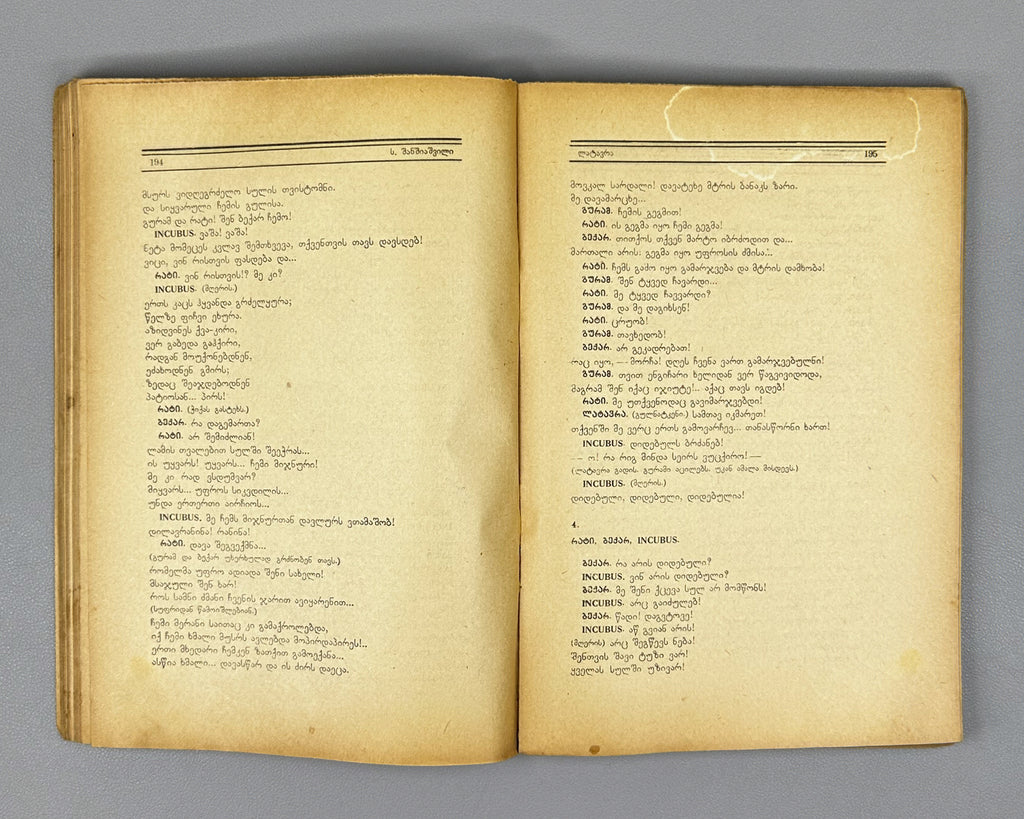 194
ს. შანშიაშვილი
მსურს ვიდღეგრძელო სულის თვისტომნი.
და სიყვარული ჩემის გულისა.
გურამ და რატი! შენ ბექარ ჩემო!
INCUBUS. ვაშა! ვაშა!
ნეტა მომეცეს კვლავ შემთხვევა, თქვენთვის თავს დავსდებ!
ვიცი, ვინ რისთვის ფასდება და...
რატი. ვინ რისთვის!? მე კი?
INCUBUS. (მღერის.)
ერთს კაცს ჰყვანდა გრძელყურა;
წელზე ფიჩვი ეხურა.
აზიდვინეს ქვა-კირი,
ვერ გაბედა გაჰკირი,
რადგან მოუქონებდნენ,
ეძახოდნენ გმირს;
ზედაც შეაჯდებოდნენ
პატიოსან... პირს!
რატი. (ჭიქას გასტეხს.)
ბექარ. რა დაგემართა?
რატი. არ შემიძლიან!
ლამის თვალებით სულში შევჭრას...
ის უყვარს! უყვარს... ჩემი მიჯნური!
მე კი რად ვსდუმვარ?
მიყვარს... უფროს სიკვდილის...
უნდა ერთერთი აირჩიოს...
INCUBUS. მე ჩემს მიჯნურთან დავლურს ვთამაშობ!
დილავრანინა! რანინა!
რატი. დავა შეგვექმნა...
(გურამ და ბექარ უხერხულად გრძნობენ თავს.)
რომელმა უფრო ადიადა შენი სახელი!
მსაჯული შენ ხარ!
როს სამნი ძმანი ჩვენის ჯარით ავიყარენით...
(სუფრიდან წამოიშლებიან.)
ჩემი მერანი საითაც კი გამაქროლებდა,
იქ ჩემი ხმალი მუსრს ავლებდა მოპირდაპირეს!..
ერთი მხედარი ჩემკენ ზათქით გამოექანა...
ასწია ხმალი... დავასწარ და ის ძირს დაეცა.
ლატავრა
195
მოვკალ სარდალი! დავატეხე მტრის ბანაკს ზარი.
მე დავამარცხე...
გურამ. ჩემის გეგმით!
რატი. ის გეგმა იყო ჩემი გეგმა!
ბექარ. თითქოს თქვენ მარტო იბრძოდით და...
მართალი არის: გეგმა იყო უფროსის ძმისა...
რატი. ჩემს გამო იყო გამარჯვება და მტრის დამხობა!
გურამ. შენ ტყვედ ჩავარდი...
რატი. მე ტყვედ ჩავვარდი?
გურამ. და მე დაგიხსენ!
რატი. ცრუობ!
გურამ. თავხედობ!
ბექარ. არ გეკადრებათ!
რაც იყო, — მორჩა! დღეს ჩვენა ვართ გამარჯვებულნი!
გურამ. თვით ენგიჩარი ხელიდან ვერ წაგვივიდოდა,
მაგრამ შენ იქაც იჯიუტე!.. აქაც თავს იგდებ!
რატი. მე უთქვენოდაც გავიმარჯვებდი!
ლატავრა. (გულნატკენი.) სამთავ იკმარეთ!
თქვენში მე ვერც ერთს გამოვარჩევ... თანასწორნი ხართ!
INCUBUS. დიდებულს ბრძანებ!
— ო! რა რიგ მინდა სეირს ვუცქირო! —
(ლატავრა გადის. გურამი აცილებს. უკან ამალა მისდევს.)
INCUBUS. (მღერის.)
დიდებული, დიდებული, დიდებულია!
4.
რატი, ბექარ, INCUBUS.
ბექარ. რა არის დიდებული?
INCUBUS. ვინ არის დიდებული?
ბექარ. მე შენი ქცევა სულ არ მომწონს!
INCUBUS. არც გაიძულებ!
ბექარ. წადი! დაგვტოვე!
INCUBUS. აწ გვიან არის!
(მღერის) არც შეგწევს ნება!
შენთვის შავი ტუზი ვარ!
ყველას სულში უზივარ!